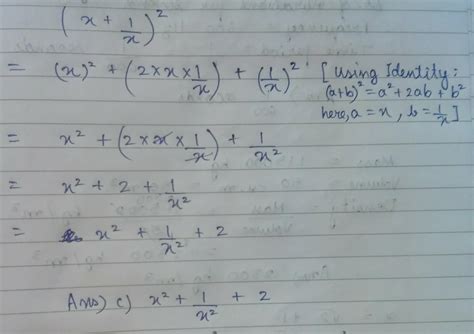 (x + 1/x)²
= (x)² + (2 × x × 1/x) + (1/x)² [Using Identity:
(a+b)² = a² + 2ab + b²
here, a = x, b = 1/x]
= x² + (2 × x × 1/x) + 1/x²
= x² + 2 + 1/x²
= x² + 1/x² + 2
Ans) c) x² + 1/x² + 2